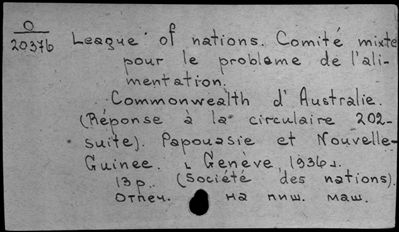 O
20376
League of nations. Comité mixte
pour le problème de l'ali-
mentation.
Commonwealth d'Australie.
(Réponse à la circulaire 202-
suite). Papouasie et Nouvelle-
Guinee. ⌞Genève, 1936⌟.
13 p. (Société des nations).
Отпеч. на пиш. маш.